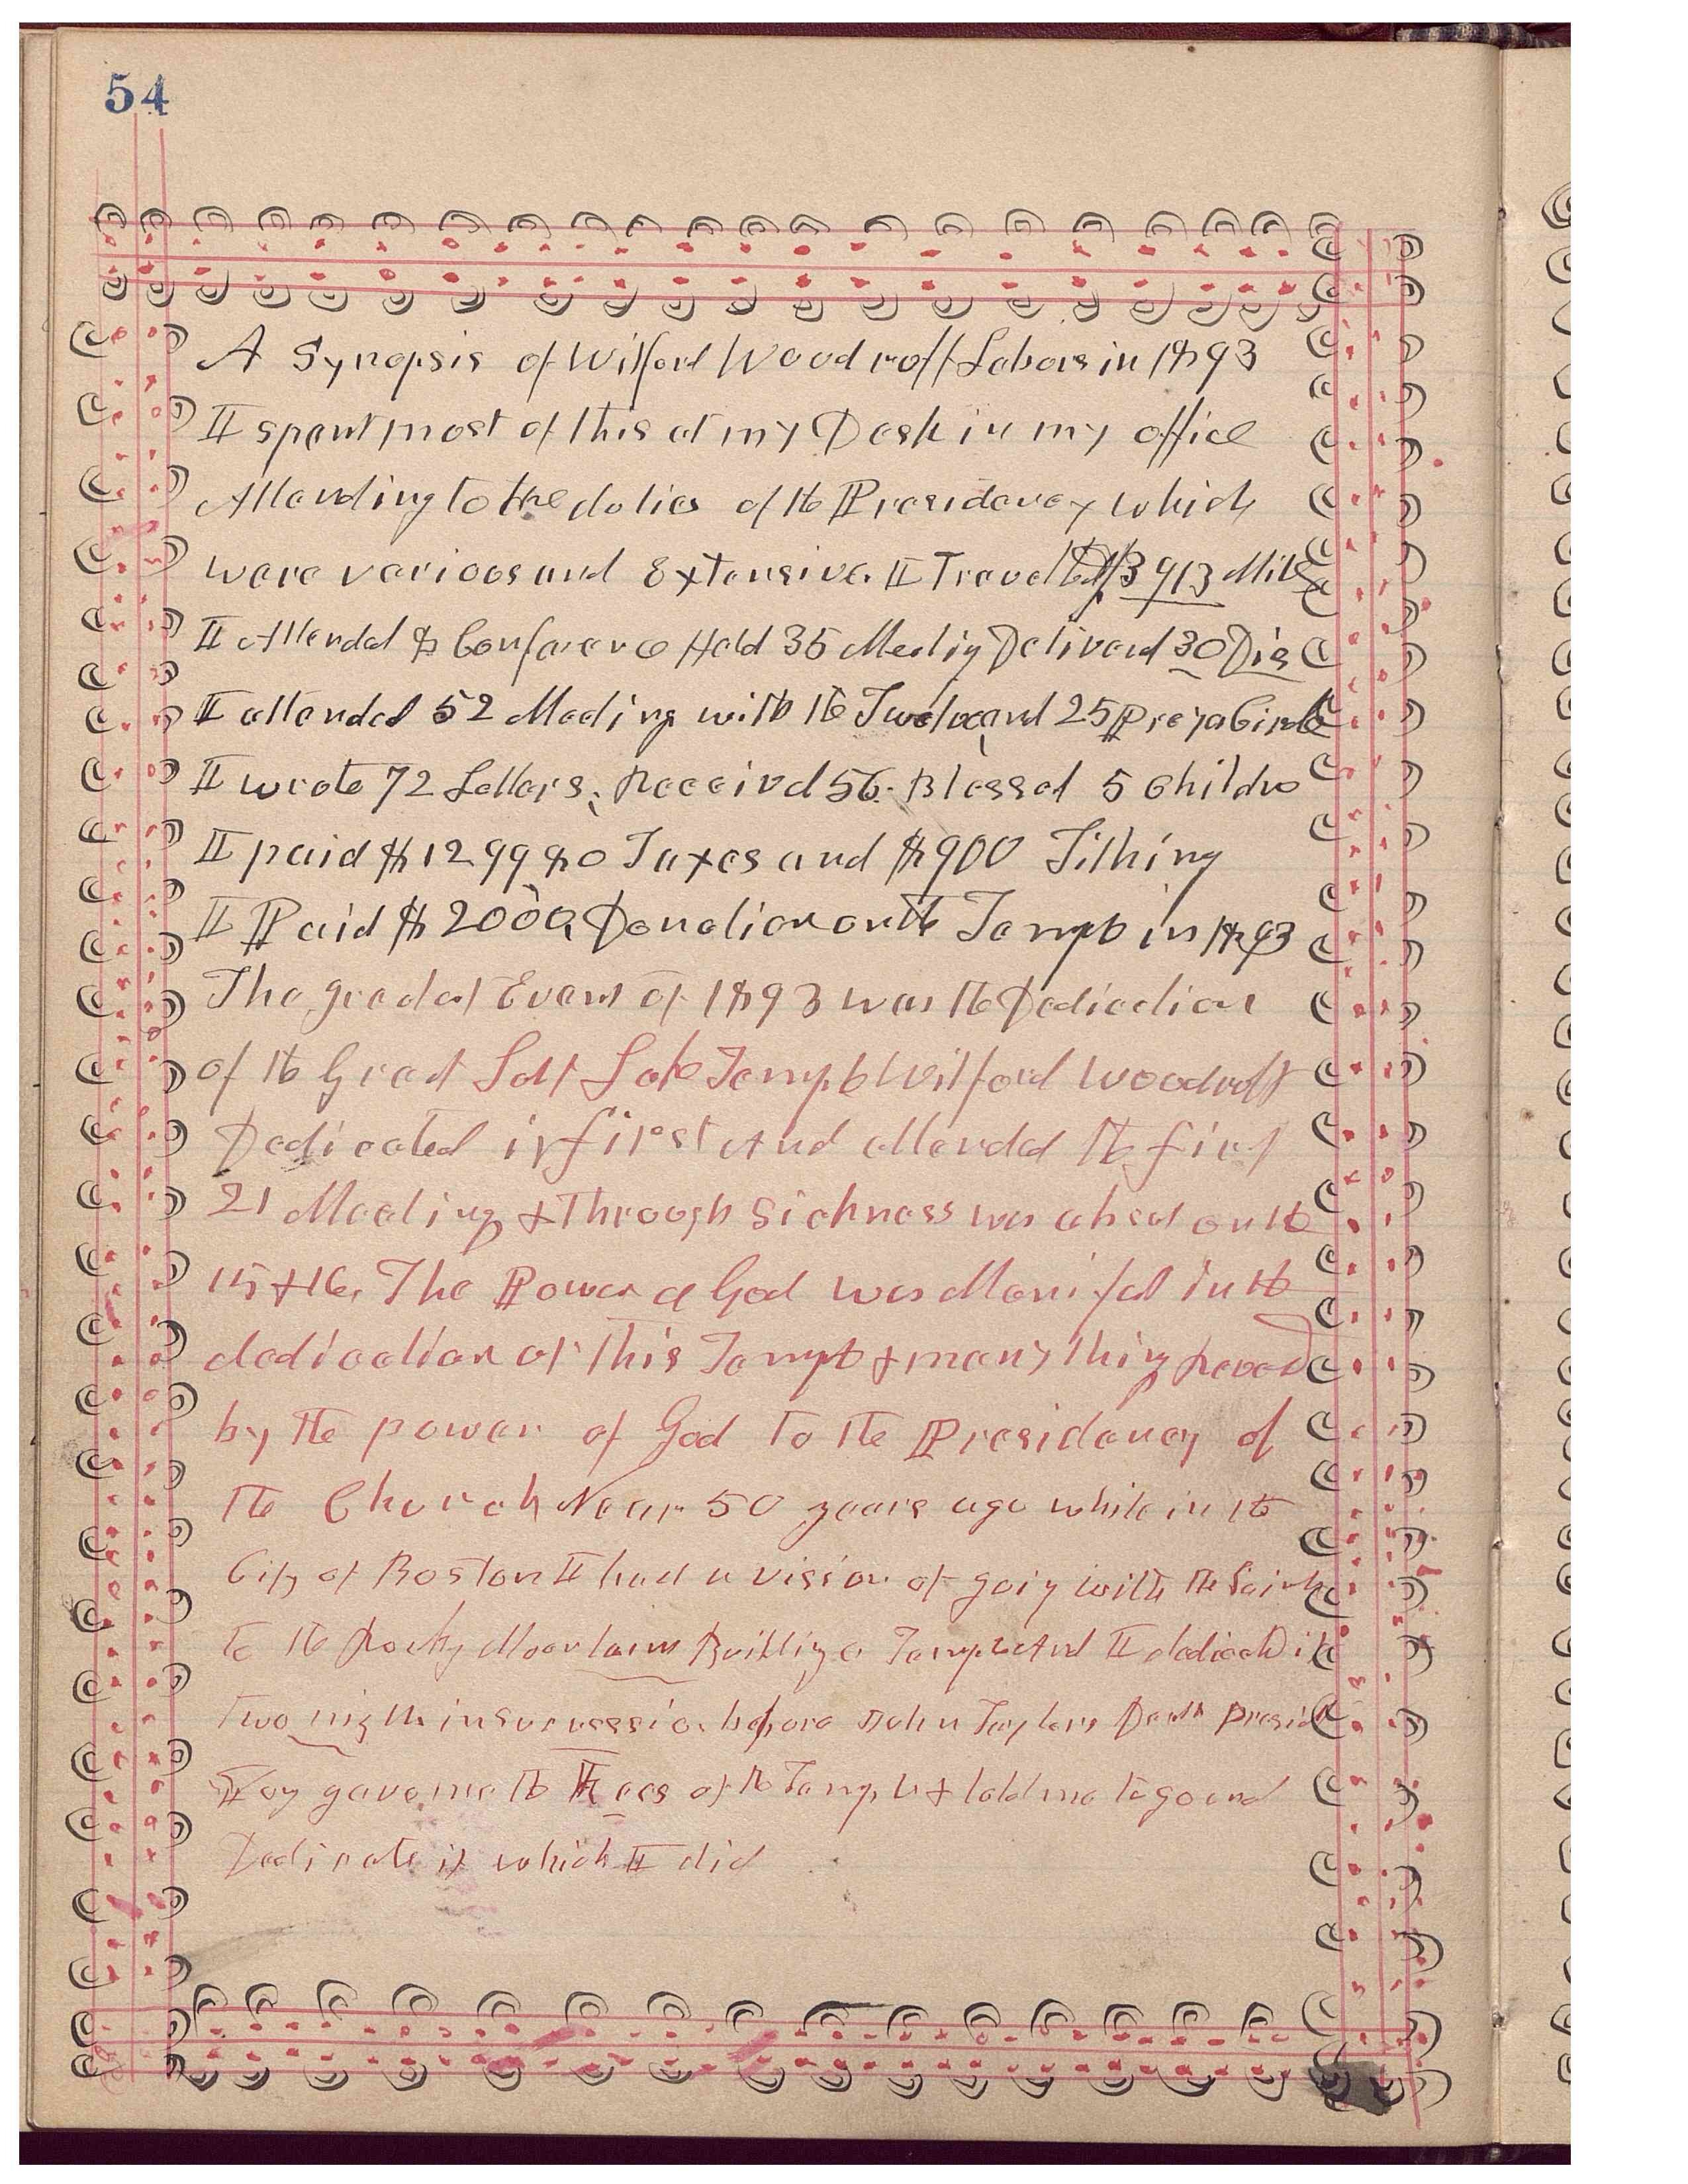 54
A Synopsis of Wilford Woodruff Labors in 1893
I spent most of this at my Desk in my office
Attending to the duties of the Presidency which
were various and Extensive. I Travelled 3913 Mile
I Attended 8 Conference Held 35 Meetig Deliverd 30 Dis
I attended 52 Meeting with the Twelve and 25 Prayer Circle
I wrote 72 Letters, Received 56. Blessed 5 Childrn
I paid $1299 80 Taxes and $900 Tithing
I Paid $2000, Donation on the Temple in 1893
The greatest Event of 1893 was the Dedication
of the Great Salt Lake Temple Wilford Woodruff
Dedicated it first And attended the first
21 Meeting & Through Sickness was absent on the
15 & 16. The Power of God was Manifest in the
dedication of this Temple & many thing Reveald
by the power of God to the Presidency of
the Church Near 50 years ago while in the
City of Boston I had a vision of goig with the Saints
to the Rocky Mountains Building a Temple And I dedicated it
Two nights in Sucussesion before John Taylors Death Presidt
Young gave me the Kees of the Temple & told me to go and
Dedicate it which I did